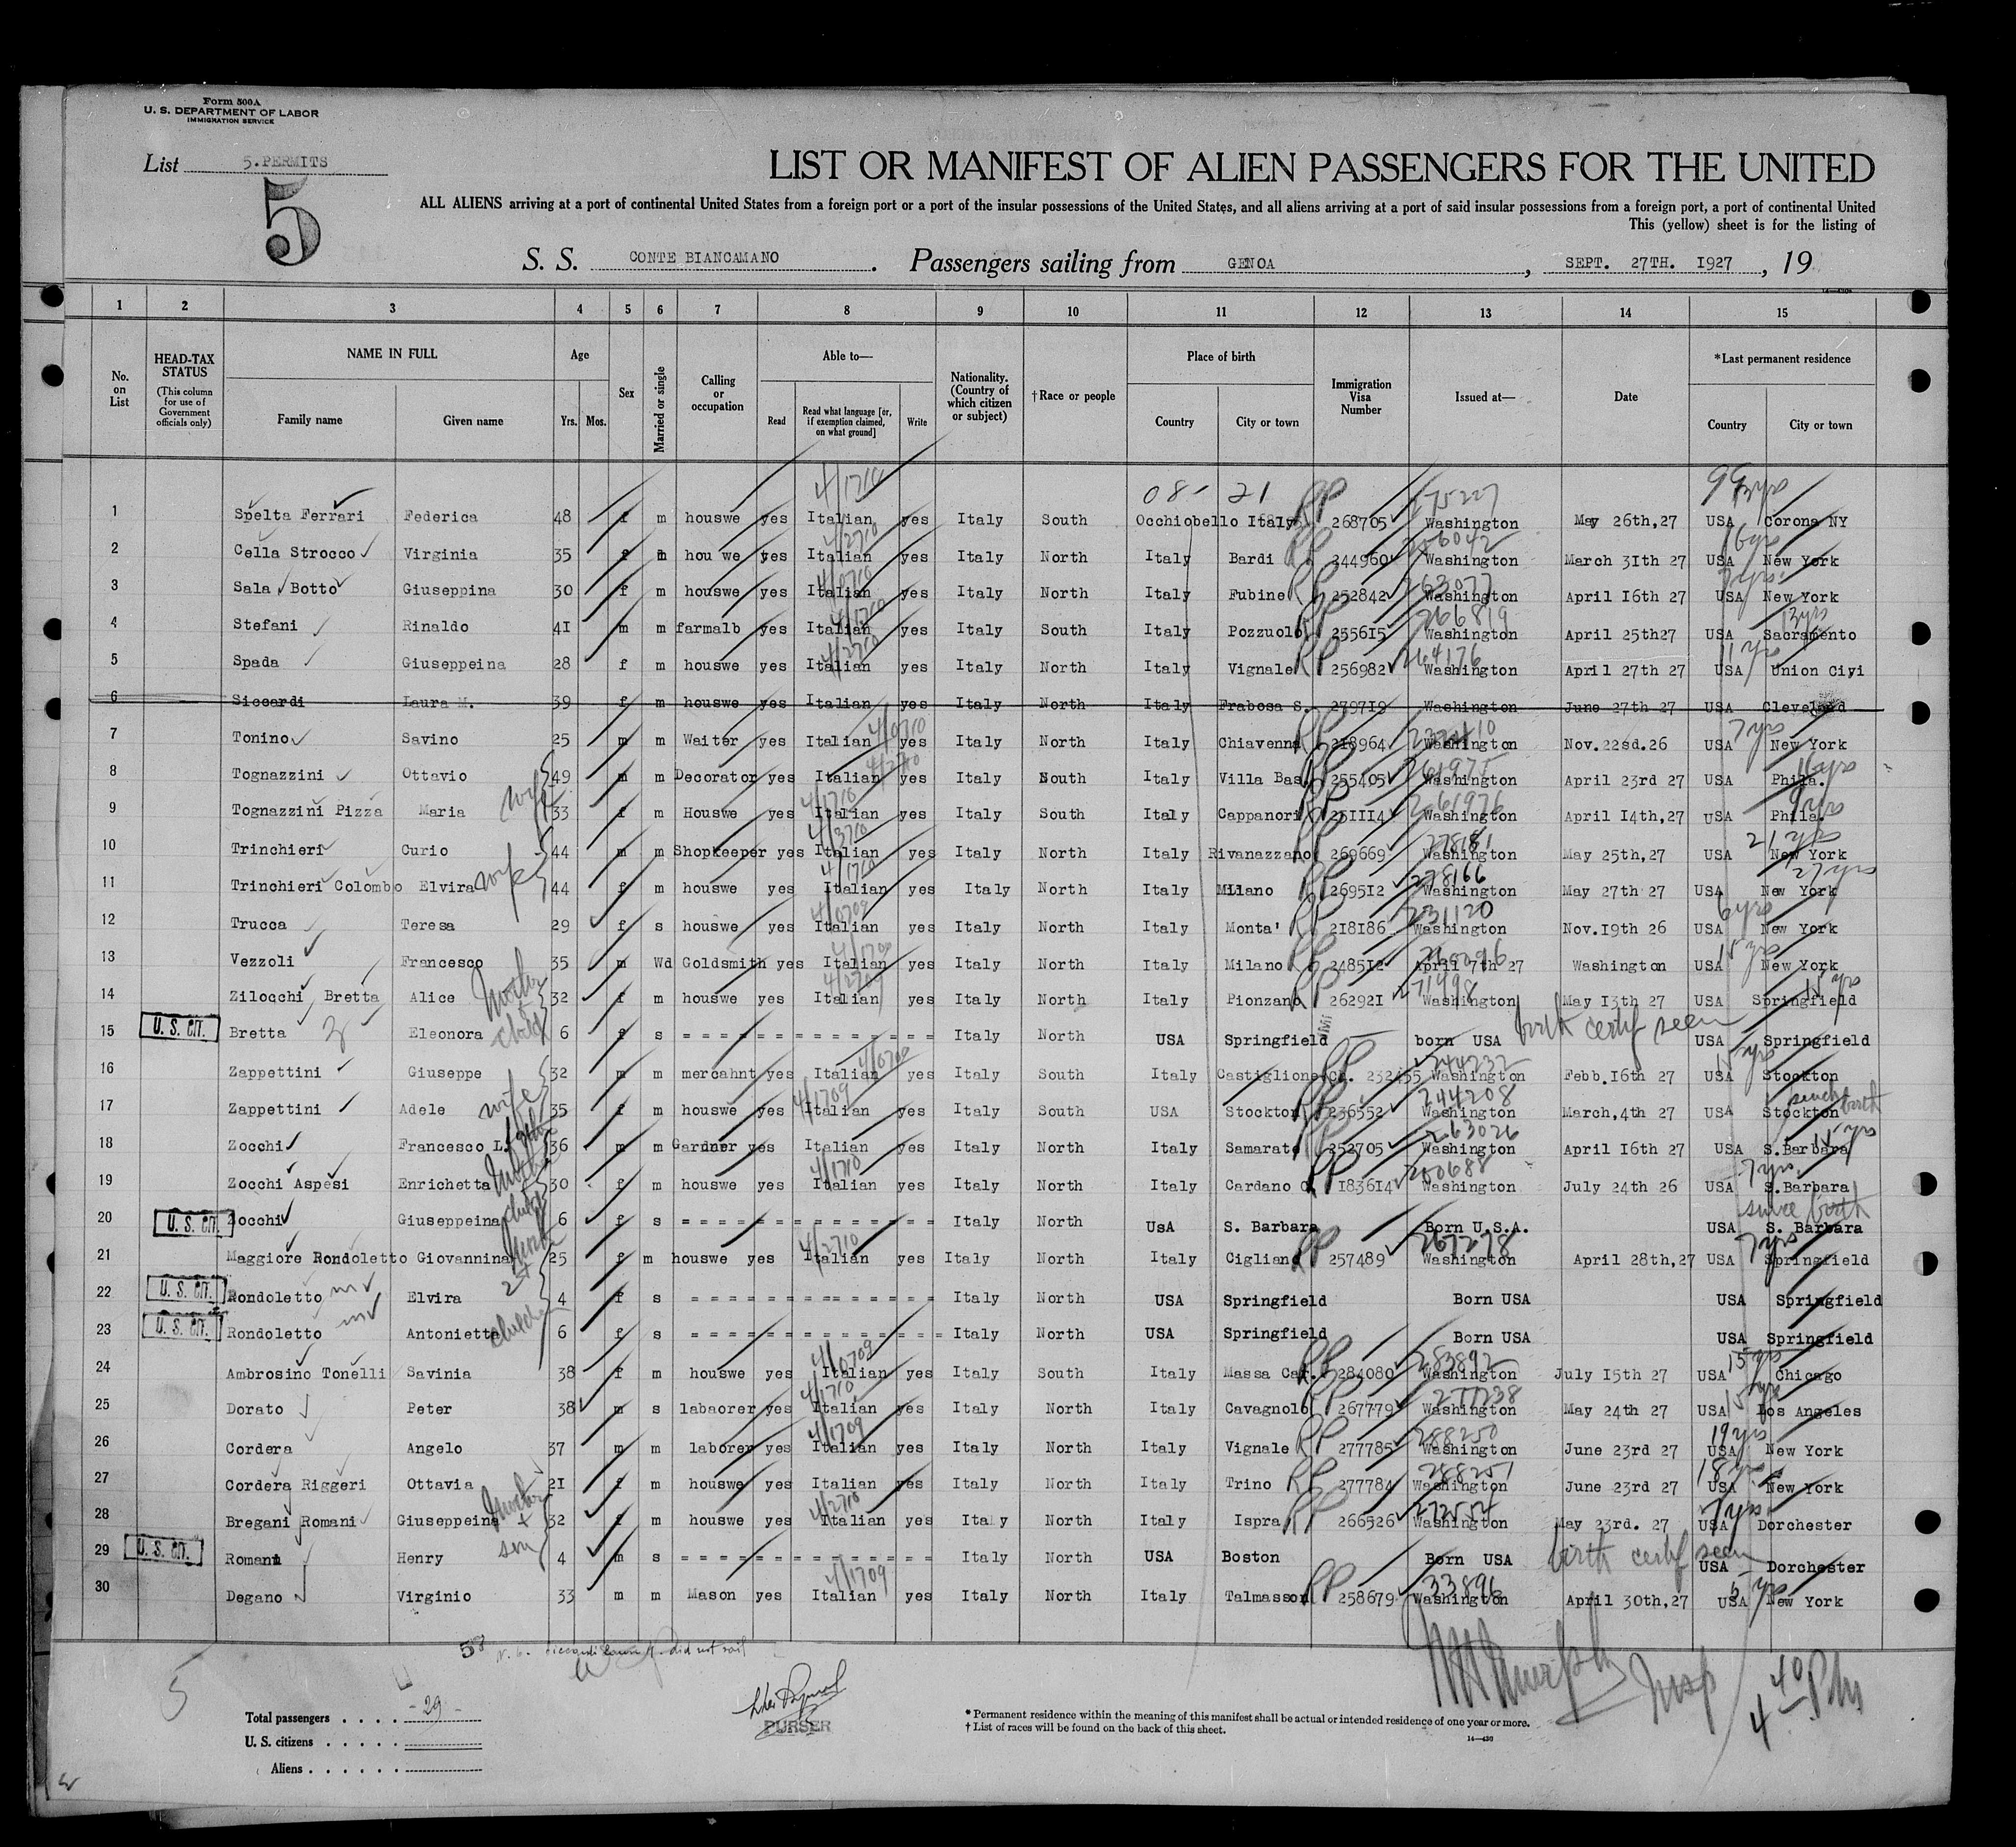 Form 500A
U. S. DEPARTMENT OF LABOR
IMMIGRATION SERVICE
List 5.PERMITS
5
LIST OR MANIFEST OF ALIEN PASSENGERS FOR THE UNITED
ALL ALIENS arriving at a port of continental United States from a foreign port or a port of the insular possessions of the United States, and all aliens arriving at a port of said insular possessions from a foreign port, a port of continental United
This (yellow) sheet is for the listing of
S. S. CONTE BIANCAMANO . Passengers sailing from GENOA , SEPT. 27TH. 1927 , 19
1 2 3 4 5 6 7 8 9 10 11 12 13 14 15
No. on List HEAD-TAX STATUS (This column for use of Government officials only) NAME IN FULL Family name Given name Age Yrs. Mos. Sex Married or single Calling or occupation Able to— Read Read what language [or, if exemption claimed, on what ground] Write Nationality. (Country of which citizen or subject) †Race or people Place of birth Country City or town Immigration Visa Number Issued at— Date *Last permanent residence Country City or town
1 Spelta Ferrari Federica 48 f m houswe yes Italian yes Italy South Occhiobello Italy 268705 Washington May 26th,27 USA Corona NY
2 Cella Strocco Virginia 35 f m hou we yes Italian yes Italy North Italy Bardi 244960 Washington March 31th 27 USA New York
3 Sala Botto Giuseppina 30 f m houswe yes Italian yes Italy North Italy Fubine 252842 263077 Washington April 16th 27 USA New York
4 Stefani Rinaldo 41 m m farmalb yes Italian yes Italy South Italy Pozzuolo 255615 266819 Washington April 25th27 USA 13yrs Sacramento
5 Spada Giuseppeina 28 f m houswe yes Italian yes Italy North Italy Vignale 256982 264176 Washington April 27th 27 USA 11 yrs Union Ciyi
6 Siccardi Laura M. 39 f m houswe yes Italian yes Italy North Italy Frabosa S. 279719 Washington June 27th 27 USA Cleveland
7 Tonino Savino 25 m m Waiter yes Italian yes Italy North Italy Chiavenna 218964 Washington Nov.22sd.26 USA 7yrs New York
8 Tognazzini Ottavio 49 m m Decorator yes Italian yes Italy South Italy Villa Bas. 255405 261975 Washington April 23rd 27 USA Phila.
9 Tognazzini Pizza Maria wife 33 f m Houswe yes Italian yes Italy South Italy Cappanori 251114 261976 Washington April 14th,27 USA 9yrs Phila.
10 Trinchieri Curio 44 m m Shopkeeper yes Italian yes Italy North Italy Rivanazzano 269669 278181 Washington May 25th,27 USA 21 yrs New York
11 Trinchieri Colombo Elvira wife 44 f m houswe yes Italian yes Italy North Italy Milano 269512 278166 Washington May 27th 27 USA 27yrs New York
12 Trucca Teresa 29 f s houswe yes Italian yes Italy North Italy Monta' 218186 231120 Washington Nov.19th 26 USA 6yrs New York
13 Vezzoli Francesco 35 m Wd Goldsmith yes Italian yes Italy North Italy Milano 248512 April 7th 27 Washington USA New York
14 Zilocchi Bretta Alice Mother + child 32 f m houswe yes Italian yes Italy North Italy Pionzano 262921 271998 Washington May 13th 27 USA Springfield
15 U. S. CIT. Bretta Eleonora 6 f s Italy North USA Springfield born USA birth certif seen USA Springfield
16 Zappettini Giuseppe 32 m m mercahnt yes Italian yes Italy South Italy Castiglione Ch. 232455 244232 Washington Febb.16th 27 USA Stockton
17 Zappettini Adele wife 35 f m houswe yes Italian yes Italy South USA Stockton 236552 244208 Washington March,4th 27 USA Stockton
18 Zocchi Francesco L. 36 m m Gardner yes Italian yes Italy North Italy Samarate 252705 263026 Washington April 16th 27 USA S.Barbara
19 Zocchi Aspesi Enrichetta 30 f m houswe yes Italian yes Italy North Italy Cardano C. 183614 200688 Washington July 24th 26 USA 7yrs. S.Barbara
20 U. S. CIT. Zocchi Giuseppeina 6 f s Italy North UsA S. Barbara Born U.S.A. USA since birth S. Barbara
21 Maggiore Rondoletto Giovannina 25 f m houswe yes Italian yes Italy North Italy Cigliano 257489 267278 Washington April 28th,27 USA 7yrs Springfield
22 U. S. CIT. Rondoletto Elvira 4 f s Italy North USA Springfield Born USA USA Springfield
23 U. S. CIT. Rondoletto Antonietta children 6 f s Italy North USA Springfield Born USA USA Springfield
24 Ambrosino Tonelli Savinia 38 f m houswe yes Italian yes Italy South Italy Massa Car. 284080 283892 Washington July 15th 27 USA 15yrs Chicago
25 Dorato Peter 38 m s labaorer yes Italian yes Italy North Italy Cavagnolo 267779 277238 Washington May 24th 27 USA Los Angeles
26 Cordera Angelo 37 m m laborer yes Italian yes Italy North Italy Vignale 277785 288250 Washington June 23rd 27 USA 19yrs New York
27 Cordera Riggeri Ottavia 21 f m houswe yes Italian yes Italy North Italy Trino 277784 288251 Washington June 23rd 27 USA 18 yrs New York
28 Bregani Romani Giuseppeina Mother + son 32 f m houswe yes Italian yes Italy North Italy Ispra 266526 Washington May 23rd. 27 USA Dorchester
29 U. S. CIT. Romani Henry 4 m s Italy North USA Boston Born USA birth certif seen USA Dorchester
30 Degano Virginio 33 m m Mason yes Italian yes Italy North Italy Talmasson 258679 33896 Washington April 30th,27 USA New York
N. 6. Siccardi Laura M. did not sail
5
Total passengers . . . . -29-
U. S. citizens . . . . .
Aliens . . . . . .
PURSER
* Permanent residence within the meaning of this manifest shall be actual or intended residence of one year or more.
† List of races will be found on the back of this sheet.
14—430
Insp
4 40 PM